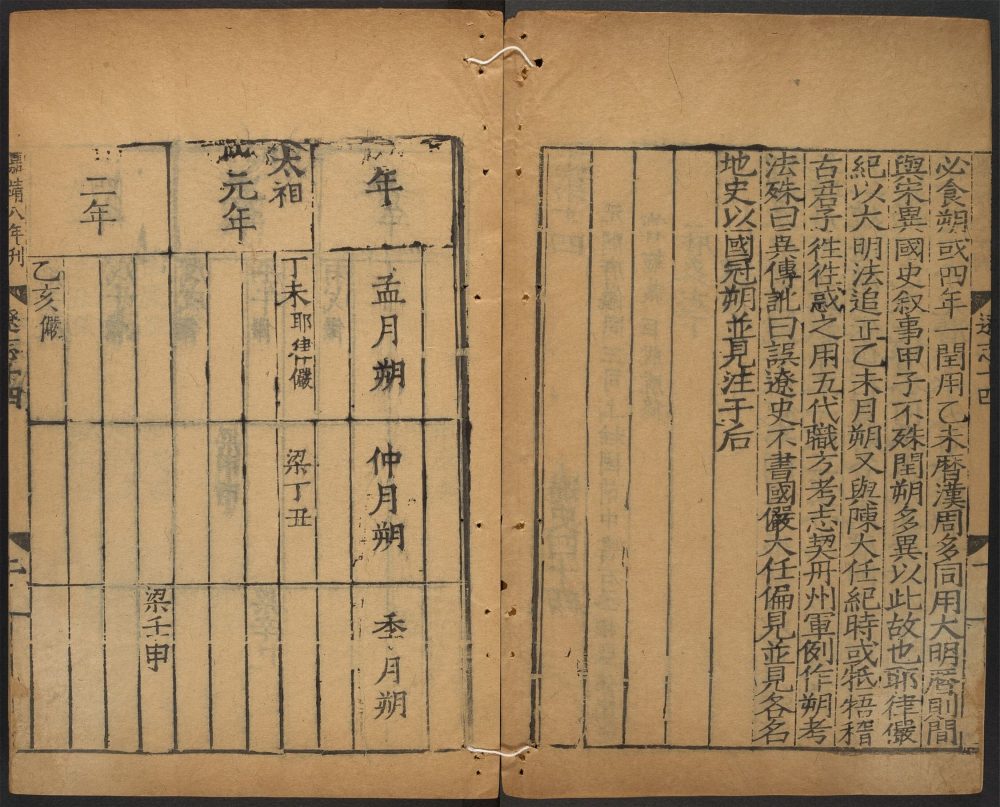 必食朔或四年一閏用乙未曆漢周多同用大明曆則間
與宋異國史叙事甲子不殊閏朔多異以此故也耶律儼
紀以大明法追正乙未月朔又與陳大任紀時或牴牾稽
古君子徃徃惑之用五代職方考志契丹州軍例作朔考
法殊曰異傳訛曰誤遼史不書國儼大任偏見並見各名
地史以國冠朔並見注于后
遼志十四
一
年
孟月朔
仲月朔
季月朔
太祖
元年
丁未耶律儼
梁丁丑
梁壬申
二年
乙亥儼
嘉靖八年刊
遼志十四
二